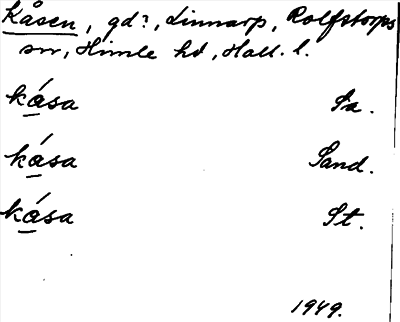 Kåsen, gd?, Linnarp, Rolfstorps
sn, Himle hd, Hall. l.
kása Sa.
kása Sand.
kása St.
1949.